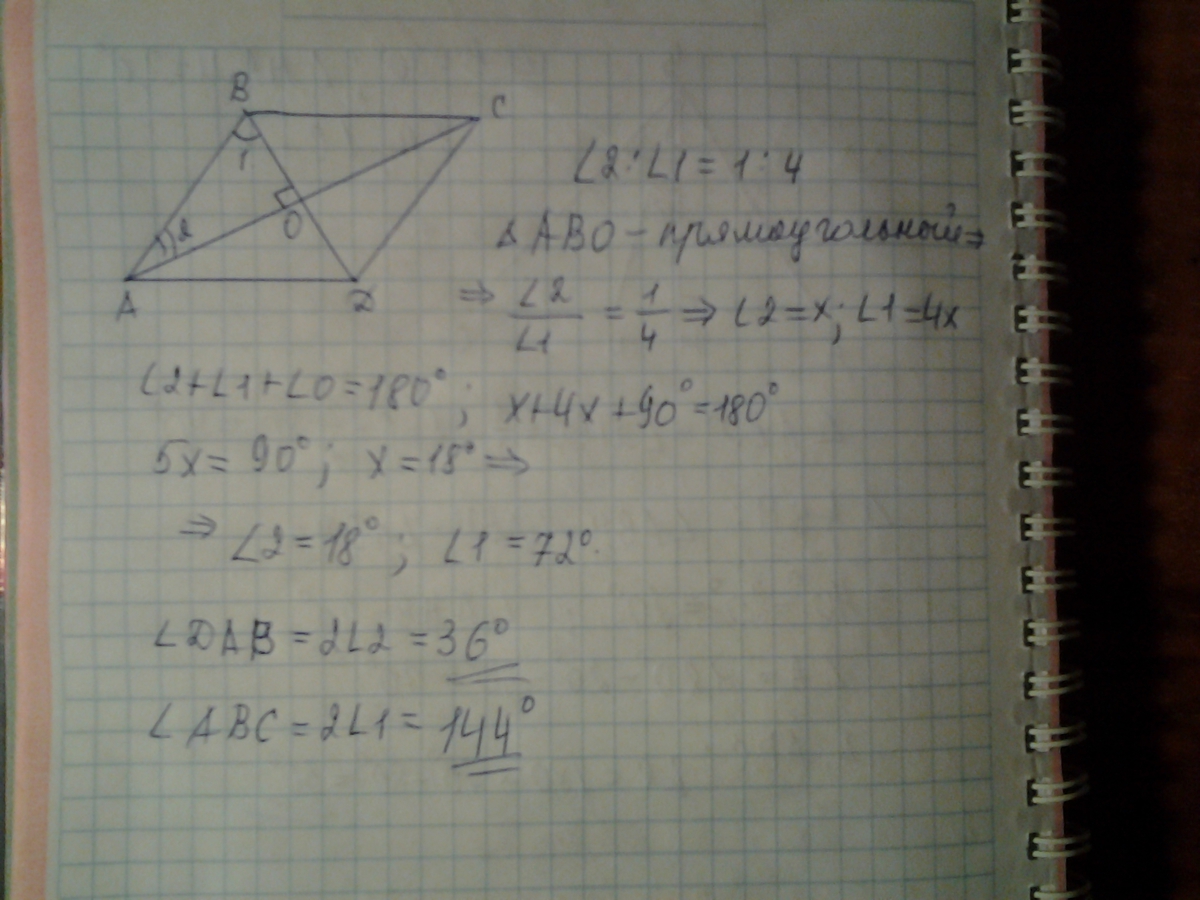 B
C
1
2
O
A
D
∠2:∠1 = 1:4
△ABO – прямоугольный ⇒
⇒ ∠2/∠1 = 1/4 ⇒ ∠2=x; ∠1=4x
∠2+∠1+∠O=180°; x+4x+90°=180°
5x= 90°; x=18° ⇒
⇒ ∠2=18°; ∠1=72°.
∠DAB = 2∠2 = 36°
∠ABC = 2∠1 = 144°